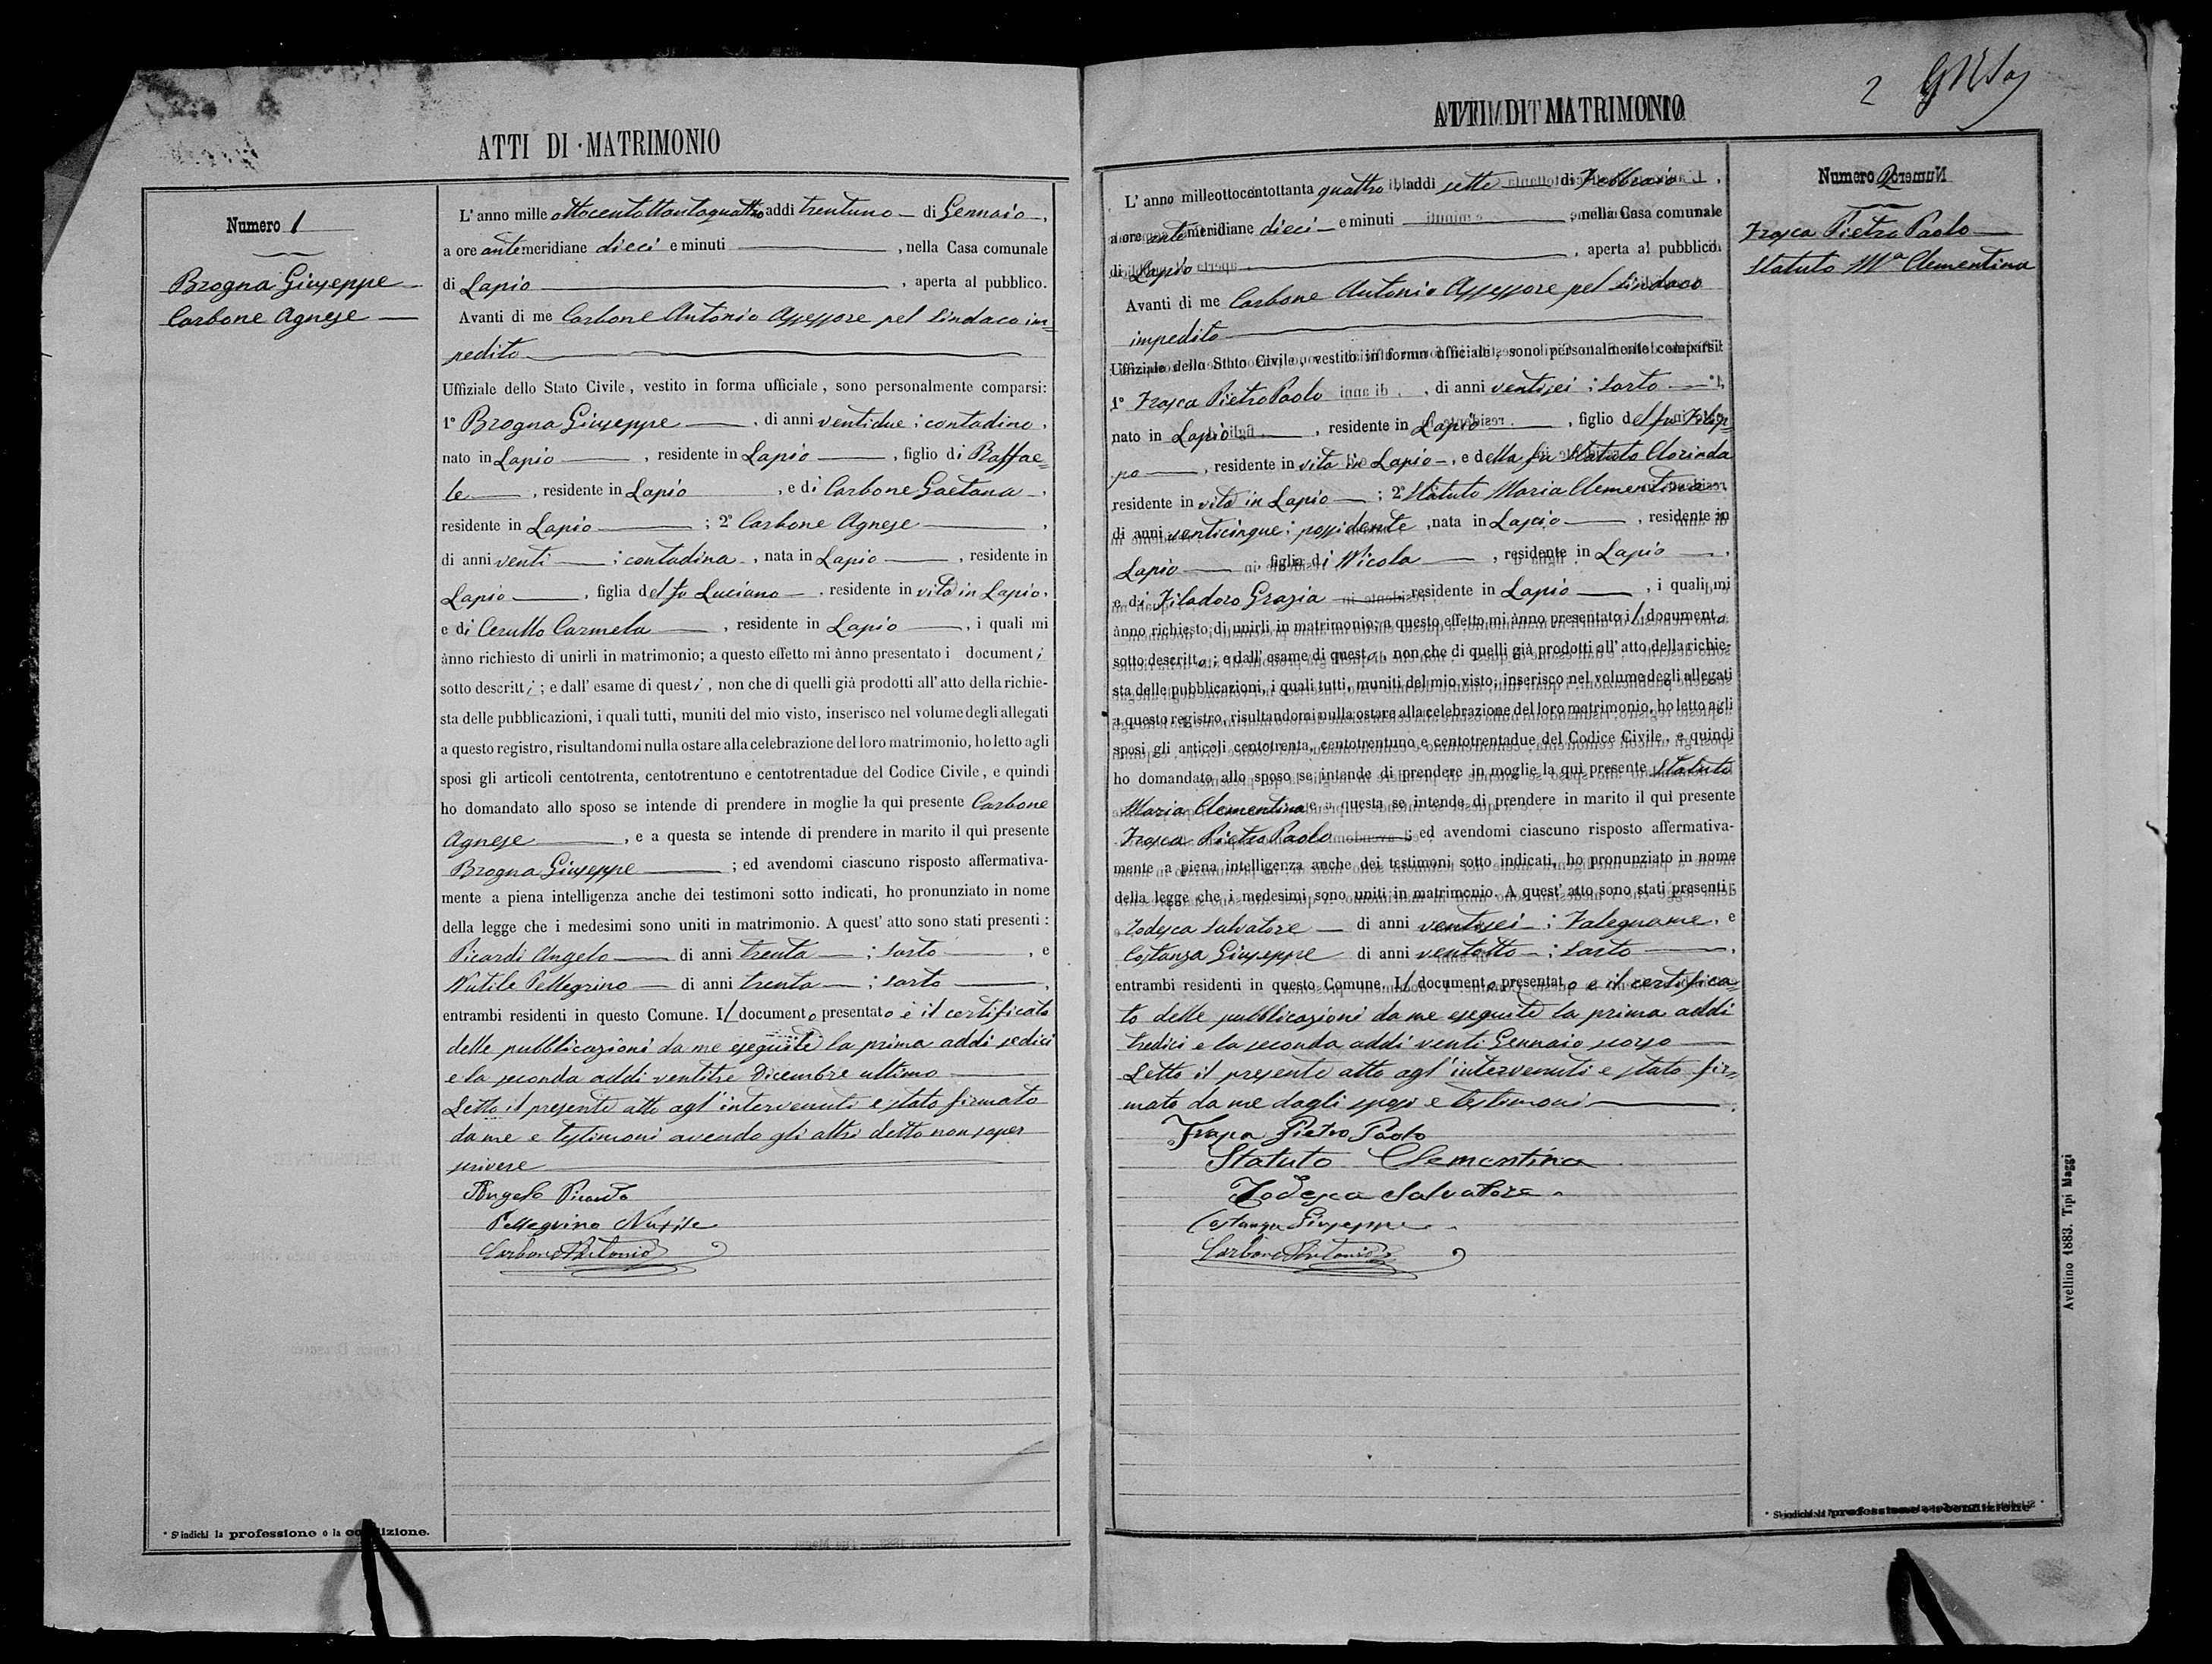 ATTI DI MATRIMONIO
Numero 1
Brogna Giuseppe
Carbone Agnese
L'anno mille ottocentottantaquattro addi trentuno di Gennaio,
a ore antemeridiane dieci e minuti , nella Casa comunale
di Lapio , aperta al pubblico.
Avanti di me Carbone Antonio Assessore pel Sindaco im=
pedito
Uffiziale dello Stato Civile, vestito in forma ufficiale, sono personalmente comparsi:
1º Brogna Giuseppe , di anni ventidue ; contadino,
nato in Lapio , residente in Lapio , figlio di Raffae=
le , residente in Lapio , e di Carbone Gaetana ,
residente in Lapio ; 2º Carbone Agnese ,
di anni venti ; contadina , nata in Lapio , residente in
Lapio , figlia del fu Luciano , residente in vita in Lapio,
e di Cerullo Carmela , residente in Lapio , i quali mi
ànno richiesto di unirli in matrimonio; a questo effetto mi ànno presentato i documenti
sotto descritti ; e dall' esame di questi , non che di quelli già prodotti all' atto della richie-
sta delle pubblicazioni, i quali tutti, muniti del mio visto, inserisco nel volume degli allegati
a questo registro, risultandomi nulla ostare alla celebrazione del loro matrimonio, ho letto agli
sposi gli articoli centotrenta, centotrentuno e centotrentadue del Codice Civile, e quindi
ho domandato allo sposo se intende di prendere in moglie la quì presente Carbone
Agnese , e a questa se intende di prendere in marito il quì presente
Brogna Giuseppe ; ed avendomi ciascuno risposto affermativa-
mente a piena intelligenza anche dei testimoni sotto indicati, ho pronunziato in nome
della legge che i medesimi sono uniti in matrimonio. A quest' atto sono stati presenti :
Picardi Angelo di anni trenta ; sarto , e
Nutile Pellegrino di anni trenta ; sarto ,
entrambi residenti in questo Comune. Il documento presentato è il certificato
delle pubblicazioni da me eseguite la prima addi sedici
e la seconda addi ventitre Dicembre ultimo
Letto il presente atto agl'intervenuti e stato firmato
da me e testimoni avendo gli altri detto non saper
scrivere
Angelo Picardo
Pellegrino Nutile
Carbone Antonio
* Si indichi la professione o la condizione.
2
ATTI DI MATRIMONIO
Numero 2
Frasca Pietro Paolo
Statuto Mª Clementina
L'anno milleottocentottanta quattro addi sette di Febbraio ,
a ore antemeridiane dieci e minuti , nella Casa comunale
di Lapio , aperta al pubblico.
Avanti di me Carbone Antonio Assessore pel Sindaco
impedito
Uffiziale dello Stato Civile, vestito in forma ufficiale, sono personalmente comparsi:
1º Frasca Pietro Paolo , di anni ventisei ; sarto *,
nato in Lapio , residente in Lapio , figlio del fu Filip=
po , residente in vita in Lapio , e della fu Statuto Clorinda
residente in vita in Lapio ; 2º Statuto Maria Clementina
di anni venticinque ; possidente , nata in Lapio , residente in
Lapio figlia di Nicola , residente in Lapio ,
e di Filadoro Grazia residente in Lapio , i quali mi
ànno richiesto di unirli in matrimonio; a questo effetto mi ànno presentato il documento
sotto descritto ; e dall' esame di questo , non che di quelli già prodotti all' atto della richie-
sta delle pubblicazioni, i quali tutti, muniti del mio visto, inserisco nel volume degli allegati
a questo registro, risultandomi nulla ostare alla celebrazione del loro matrimonio, ho letto agli
sposi gli articoli centotrenta, centotrentuno e centotrentadue del Codice Civile, e quindi
ho domandato allo sposo se intende di prendere in moglie la quì presente Statuto
Maria Clementina e a questa se intende di prendere in marito il quì presente
Frasca Pietro Paolo ; ed avendomi ciascuno risposto affermativa-
mente a piena intelligenza anche dei testimoni sotto indicati, ho pronunziato in nome
della legge che i medesimi sono uniti in matrimonio. A quest' atto sono stati presenti :
Todesca Salvatore di anni ventisei ; Falegname, e
Costanza Giuseppe di anni ventotto ; sarto ,
entrambi residenti in questo Comune. Il documento presentato e il certifica=
to delle pubblicazioni da me eseguite la prima addi
tredici e la seconda addi venti Gennaio scorso
Letto il presente atto agl'intervenuti e stato fir=
mato da me dagli sposi e testimoni
Frasca Pietro Paolo
Statuto Clementina
Todesca Salvatore
Costanza Giuseppe
Carbone Antonio
* Si indichi la professione o la condizione
Avellino 1883. Tipi Maggi